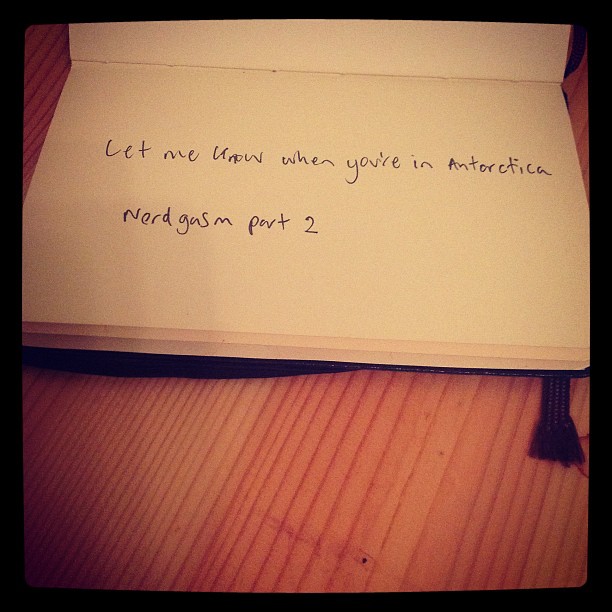 Let me know when you're in Antarctica
Nerdgasm part 2